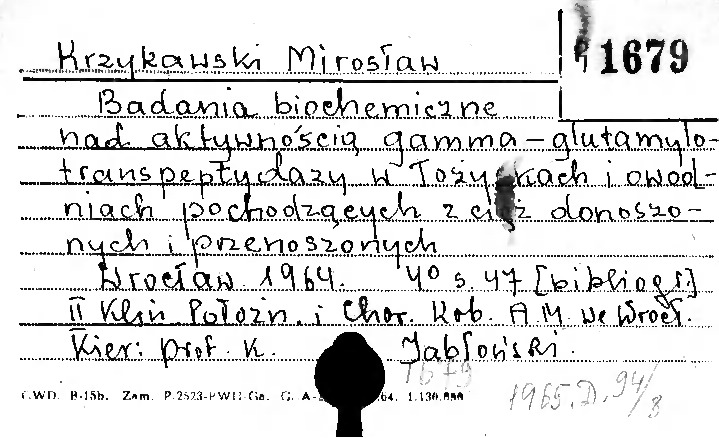 Krzykawski Mirosław
1679
Badania biochemiczne
nad aktywnością gamma-glutamylo-
transpeptydazy w łożyskach i owod-
niach pochodzących z ciąż donoszo-
nych i przenoszonych
Wrocław 1964. 4° s. 47 [bibliogr.]
II Klin. Położn. i Chor. Kob. A.M. we Wrocł.
Kier: prof. K. Jabłoński.
1679
1965.D.94/8
CWD. B-15b. Zam. P.2523-PWU-Ga. G. A- 64. 1.130.000